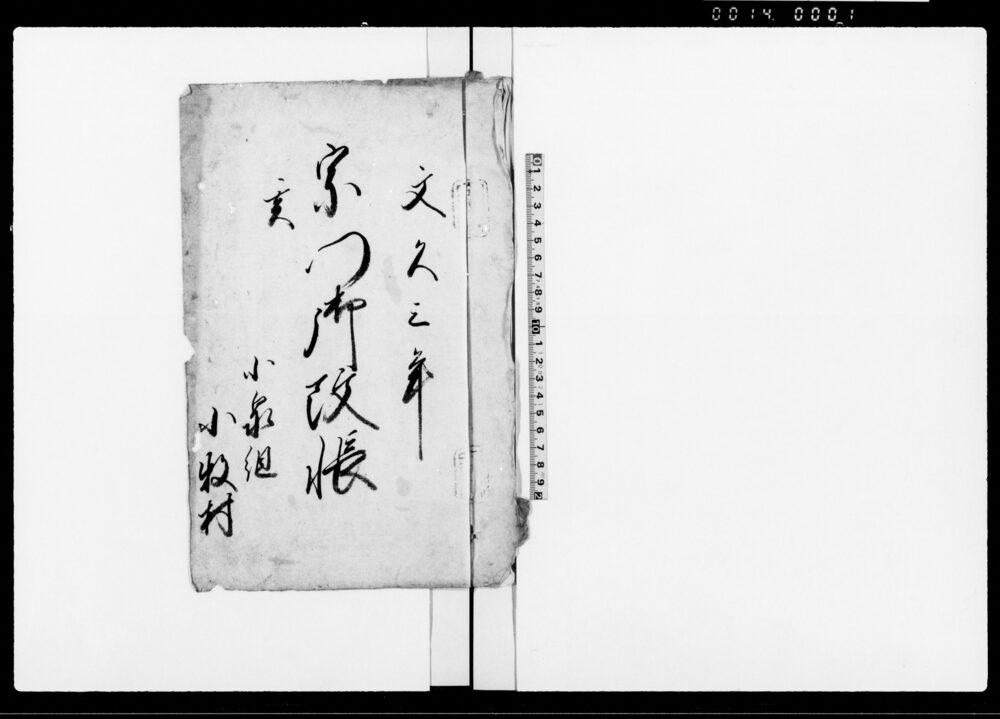 0014 0001
文久三年
宗門御改帳
亥
小泉組
小牧村
0 1 2 3 4 5 6 7 8 9 10 1 2 3 4 5 6 7 8 9 2